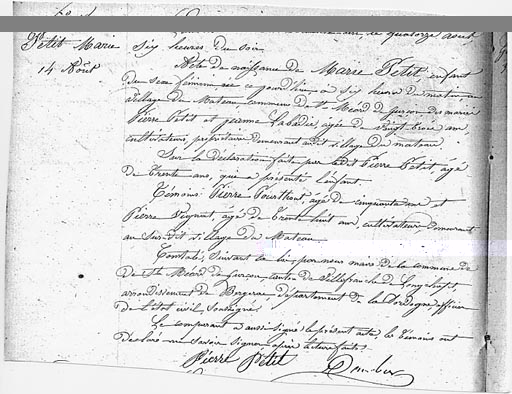 le quatorze août
Petit Marie six heures du soir
14 Août Acte de naissance de Marie Petit, enfant
du sexe féminin, né ce jourd'hui à six heures du matin au
village du Mateau, commune de St Méard de Gurçon, des mariés
Pierre Petit et Jeanne Labadie, âgée de vingt trois ans,
cultivateurs, propriétaire demeurant audit village du Mateau.
Sur la déclaration faite par ledit Pierre Petit, âgé
de Trente ans, qui a présenté l'enfant.
Témoins: Pierre, âgé de cinquante ans et
Pierre, âgé de Trente huit ans, cultivateurs demeurant
au susdit village du Mateau.
Constaté, suivant la loi, par nous maire de la commune de
de St Méard de Gurçon, canton de Villefranche de Longchapt,
arrondissement de Bergerac, département de la Dordogne, officier
de l'état civil, soussigné.
Le comparant a aussi signé le présent acte, les témoins ont
déclaré ne savoir signer après lecture faite.
Pierre Petit